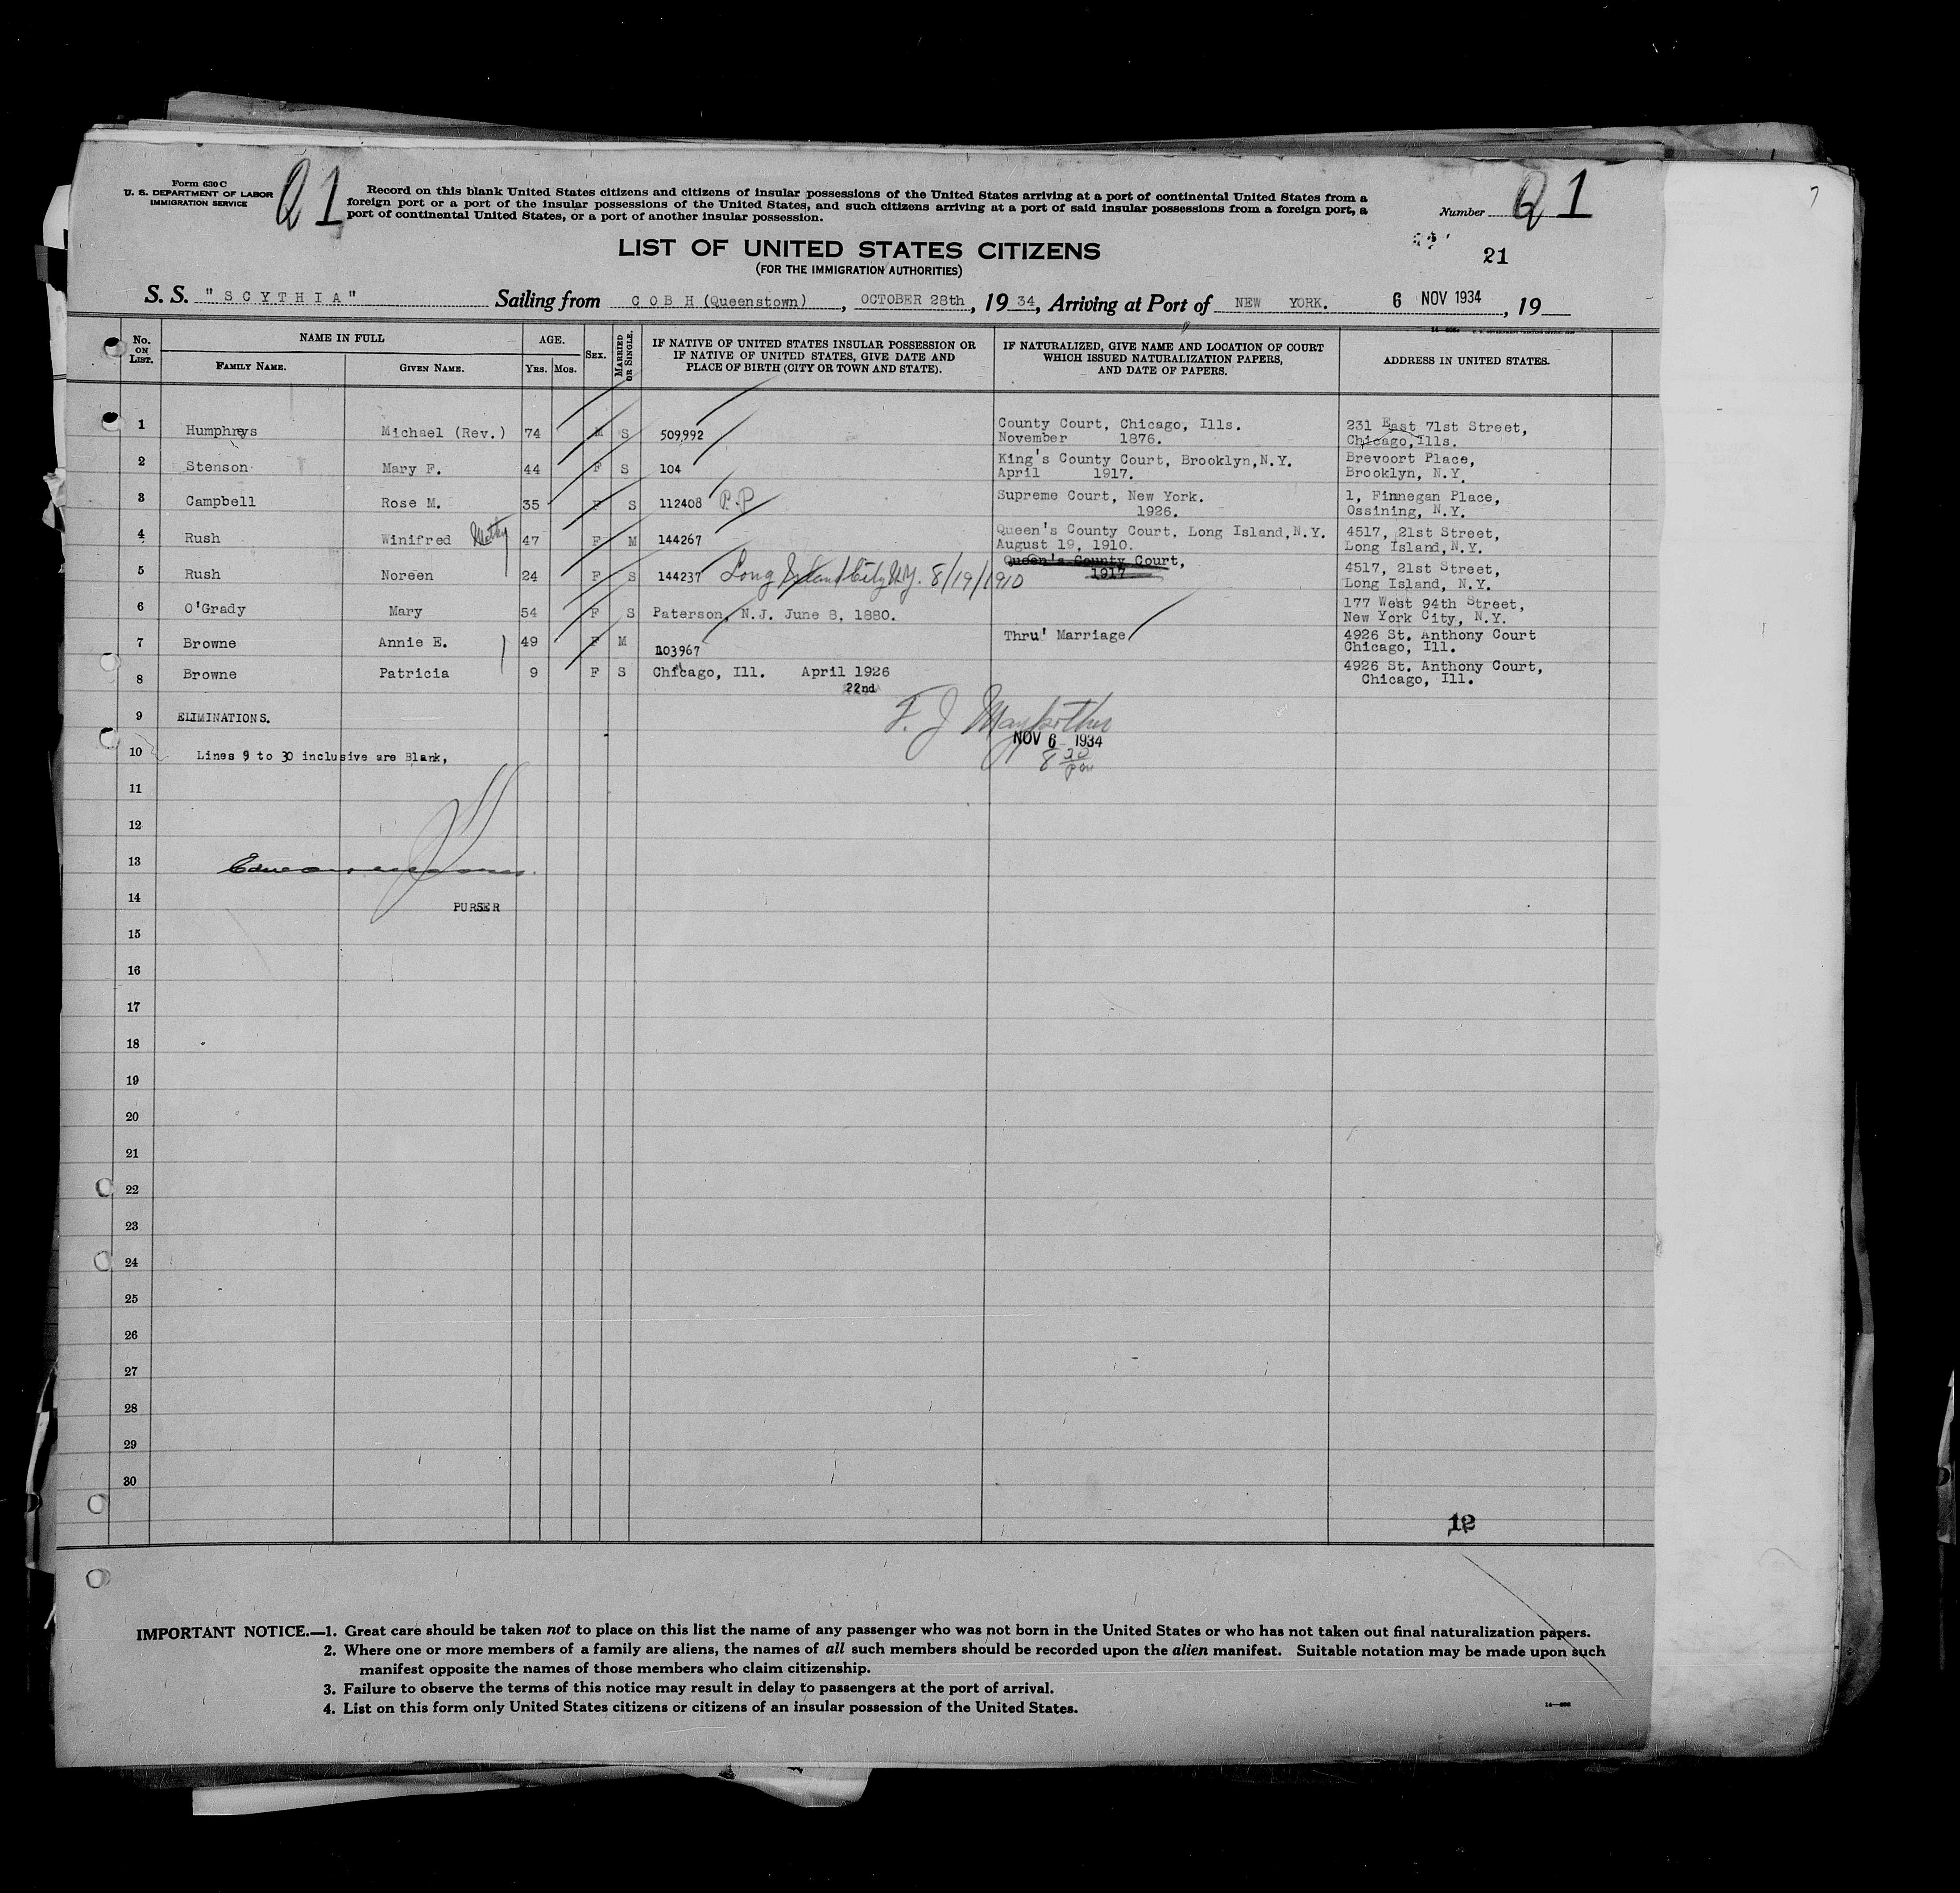 Form 630 C
U. S. DEPARTMENT OF LABOR
IMMIGRATION SERVICE
21
Record on this blank United States citizens and citizens of insular possessions of the United States arriving at a port of continental United States from a
foreign port or a port of the insular possessions of the United States, and such citizens arriving at a port of said insular possessions from a foreign port, a
port of continental United States, or a port of another insular possession.
Number 21
21
LIST OF UNITED STATES CITIZENS
(FOR THE IMMIGRATION AUTHORITIES)
S. S. "SCYTHIA" Sailing from COBH (Queenstown), OCTOBER 28th, 19 34, Arriving at Port of NEW YORK. 6 NOV 1934, 19
No. ON LIST. NAME IN FULL FAMILY NAME. GIVEN NAME. AGE. YRS. MOS. SEX. MARRIED OR SINGLE. IF NATIVE OF UNITED STATES INSULAR POSSESSION OR IF NATIVE OF UNITED STATES, GIVE DATE AND PLACE OF BIRTH (CITY OR TOWN AND STATE). IF NATURALIZED, GIVE NAME AND LOCATION OF COURT WHICH ISSUED NATURALIZATION PAPERS, AND DATE OF PAPERS. ADDRESS IN UNITED STATES.
1 Humphreys Michael (Rev.) 74 M S 509992 County Court, Chicago, Ills. November 1876. 231 East 71st Street, Chicago, Ills.
2 Stenson Mary F. 44 F S 104 King's County Court, Brooklyn, N.Y. April 1917. Brevoort Place, Brooklyn, N.Y.
3 Campbell Rose M. 35 F S 112408 P.P Supreme Court, New York. 1926. 1, Finnegan Place, Ossining, N.Y.
4 Rush Winifred 47 F M 144267 Queen's County Court, Long Island, N.Y. August 19, 1910. 4517, 21st Street, Long Island, N.Y.
5 Rush Noreen 24 F S 144237 Long Island City N.Y. 8/19/1910 Queen's County Court, 1917 4517, 21st Street, Long Island, N.Y.
6 O'Grady Mary 54 F S Paterson, N.J. June 8, 1880. 177 West 94th Street, New York City, N.Y.
7 Browne Annie E. 49 F M 103967 Thru' Marriage 4926 St. Anthony Court Chicago, Ill.
8 Browne Patricia 9 F S Chicago, Ill. April 1926 22nd 4926 St. Anthony Court, Chicago, Ill.
9 ELIMINATIONS.
NOV 6 1934
8 30 pm
10 Lines 9 to 30 inclusive are Blank,
11
12
13
14 PURSER
15
16
17
18
19
20
21
22
23
24
25
26
27
28
29
30
12
IMPORTANT NOTICE.—1. Great care should be taken not to place on this list the name of any passenger who was not born in the United States or who has not taken out final naturalization papers.
2. Where one or more members of a family are aliens, the names of all such members should be recorded upon the alien manifest. Suitable notation may be made upon such
manifest opposite the names of those members who claim citizenship.
3. Failure to observe the terms of this notice may result in delay to passengers at the port of arrival.
4. List on this form only United States citizens or citizens of an insular possession of the United States.